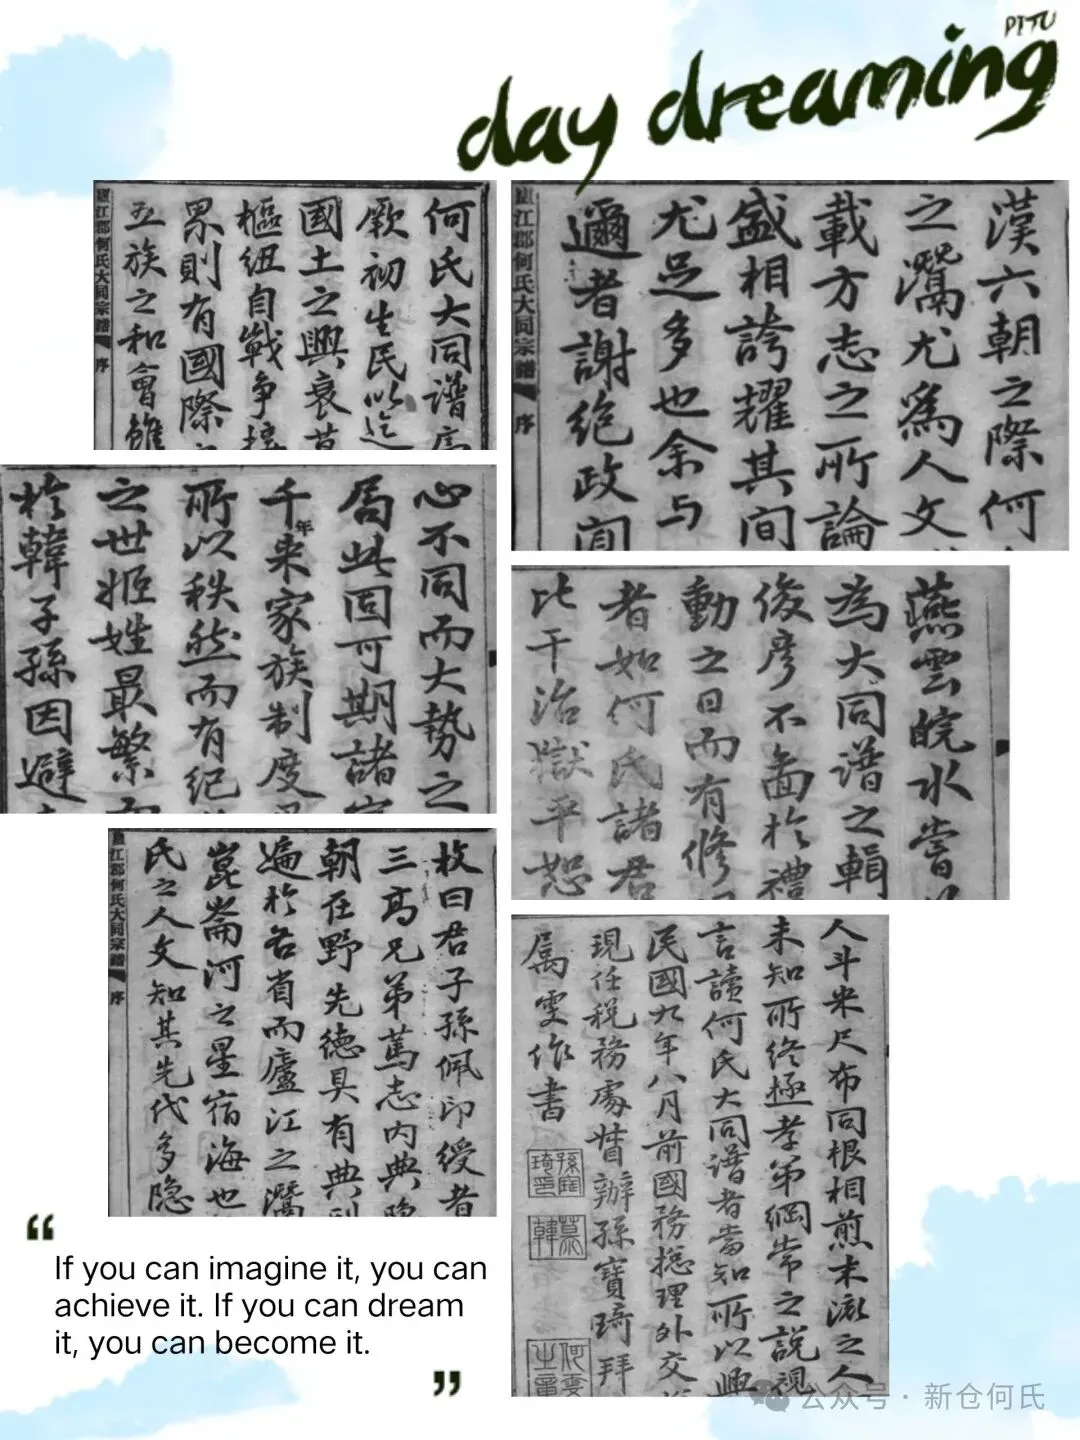 PITU
day dreaming
何氏大同譜序
厥初生民以迄
國土之興衰莫
樞紐自戰爭接
累則有國際
五族之和會雖
廬江郡何氏大同宗譜 序
漢六朝之際何
之灊尤為人文
載方志之所論
盛相誇耀其間
尤足多也余与
邇者謝絶政聞
廬江郡何氏大同宗譜 序
心不同而大勢之
局此固可期諸
千年来家族制度
所以秩然而有紀
之世姬姓最繁
於韓子孫因避
燕雲皖水嘗
為大同譜之輯
俊彦不啚於禮
動之日而有修
者如何氏諸君
比干治獄平恕
枚曰君子孫佩印綬者
三高兄弟篤志内典隐
朝在野先德具有典型
遍於各省而廬江之灊
崑崙河之星宿海也
氏之人文知其先代多隐
廬江郡何氏大同宗譜 序
人斗米尺布同根相煎末流之人
未知所终極孝弟綱常之説視
言讀何氏大同譜者當知所以興
民國九年八月前國務總理外交
現任税務處督辦孫寶琦拜
属雯作書
孫寶琦印
慕韓
“
If you can imagine it, you can
achieve it. If you can dream
it, you can become it.
”
公众号·新仓何氏